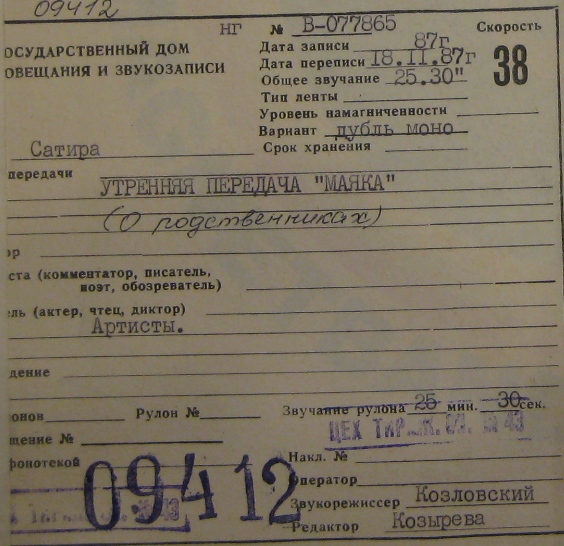 09412
НГ № В-077865 Скорость
ОСУДАРСТВЕННЫЙ ДОМ
ОВЕЩАНИЯ И ЗВУКОЗАПИСИ
Дата записи 87г
Дата переписи 18.11.87г
38
Общее звучание 25.30"
Тип ленты
Уровень намагниченности
Вариант дубль моно
Срок хранения
Сатира
передачи
УТРЕННЯЯ ПЕРЕДАЧА "МАЯКА"
(О родственниках)
ор
ста (комментатор, писатель,
поэт, обозреватель)
ль (актер, чтец, диктор)
Артисты.
дение
онов Рулон №
Звучание рулона 25 мин. 30 сек.
щение №
ЦЕХ ТИРАЖ. № 43
фонотекой
Накл. №
09412
Оператор
Звукорежиссер Козловский
Редактор Козырева